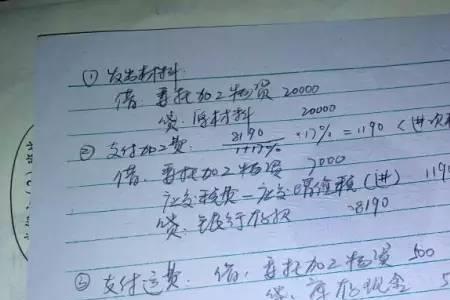 ① 发出材料
借：委托加工物资 20000
贷：原材料 20000
② 支付加工费： 8190/1+17% ·17% = 1190 <进项
借：委托加工物资 7000
应交税费－应交增值税（进） 119
贷：银行存款 8190
③ 支付运费． 借：委托加工物资 500
贷：库存现金 5